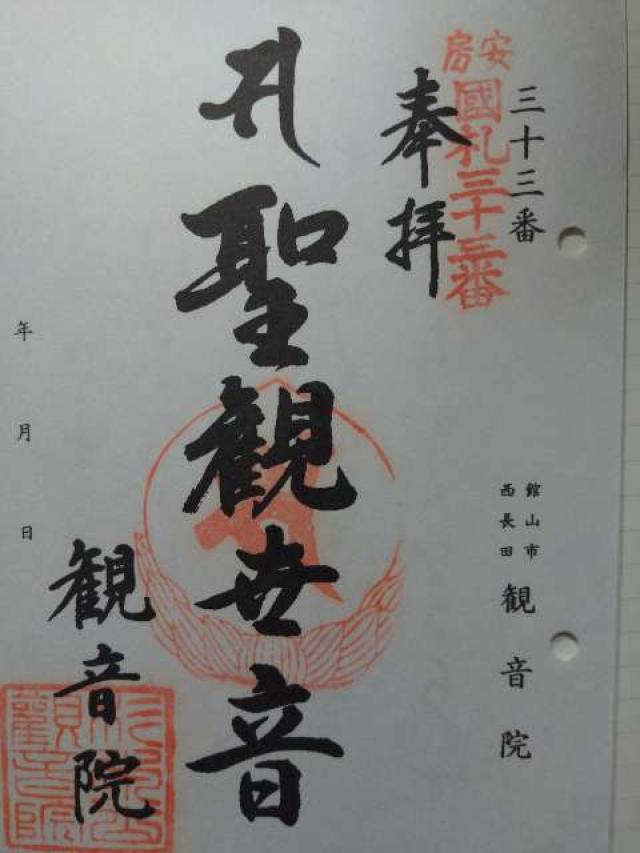 三十三番
館山市
西長田
観音院
安房
國札三十三番
奉拝
聖観世音
観音院
年 月 日